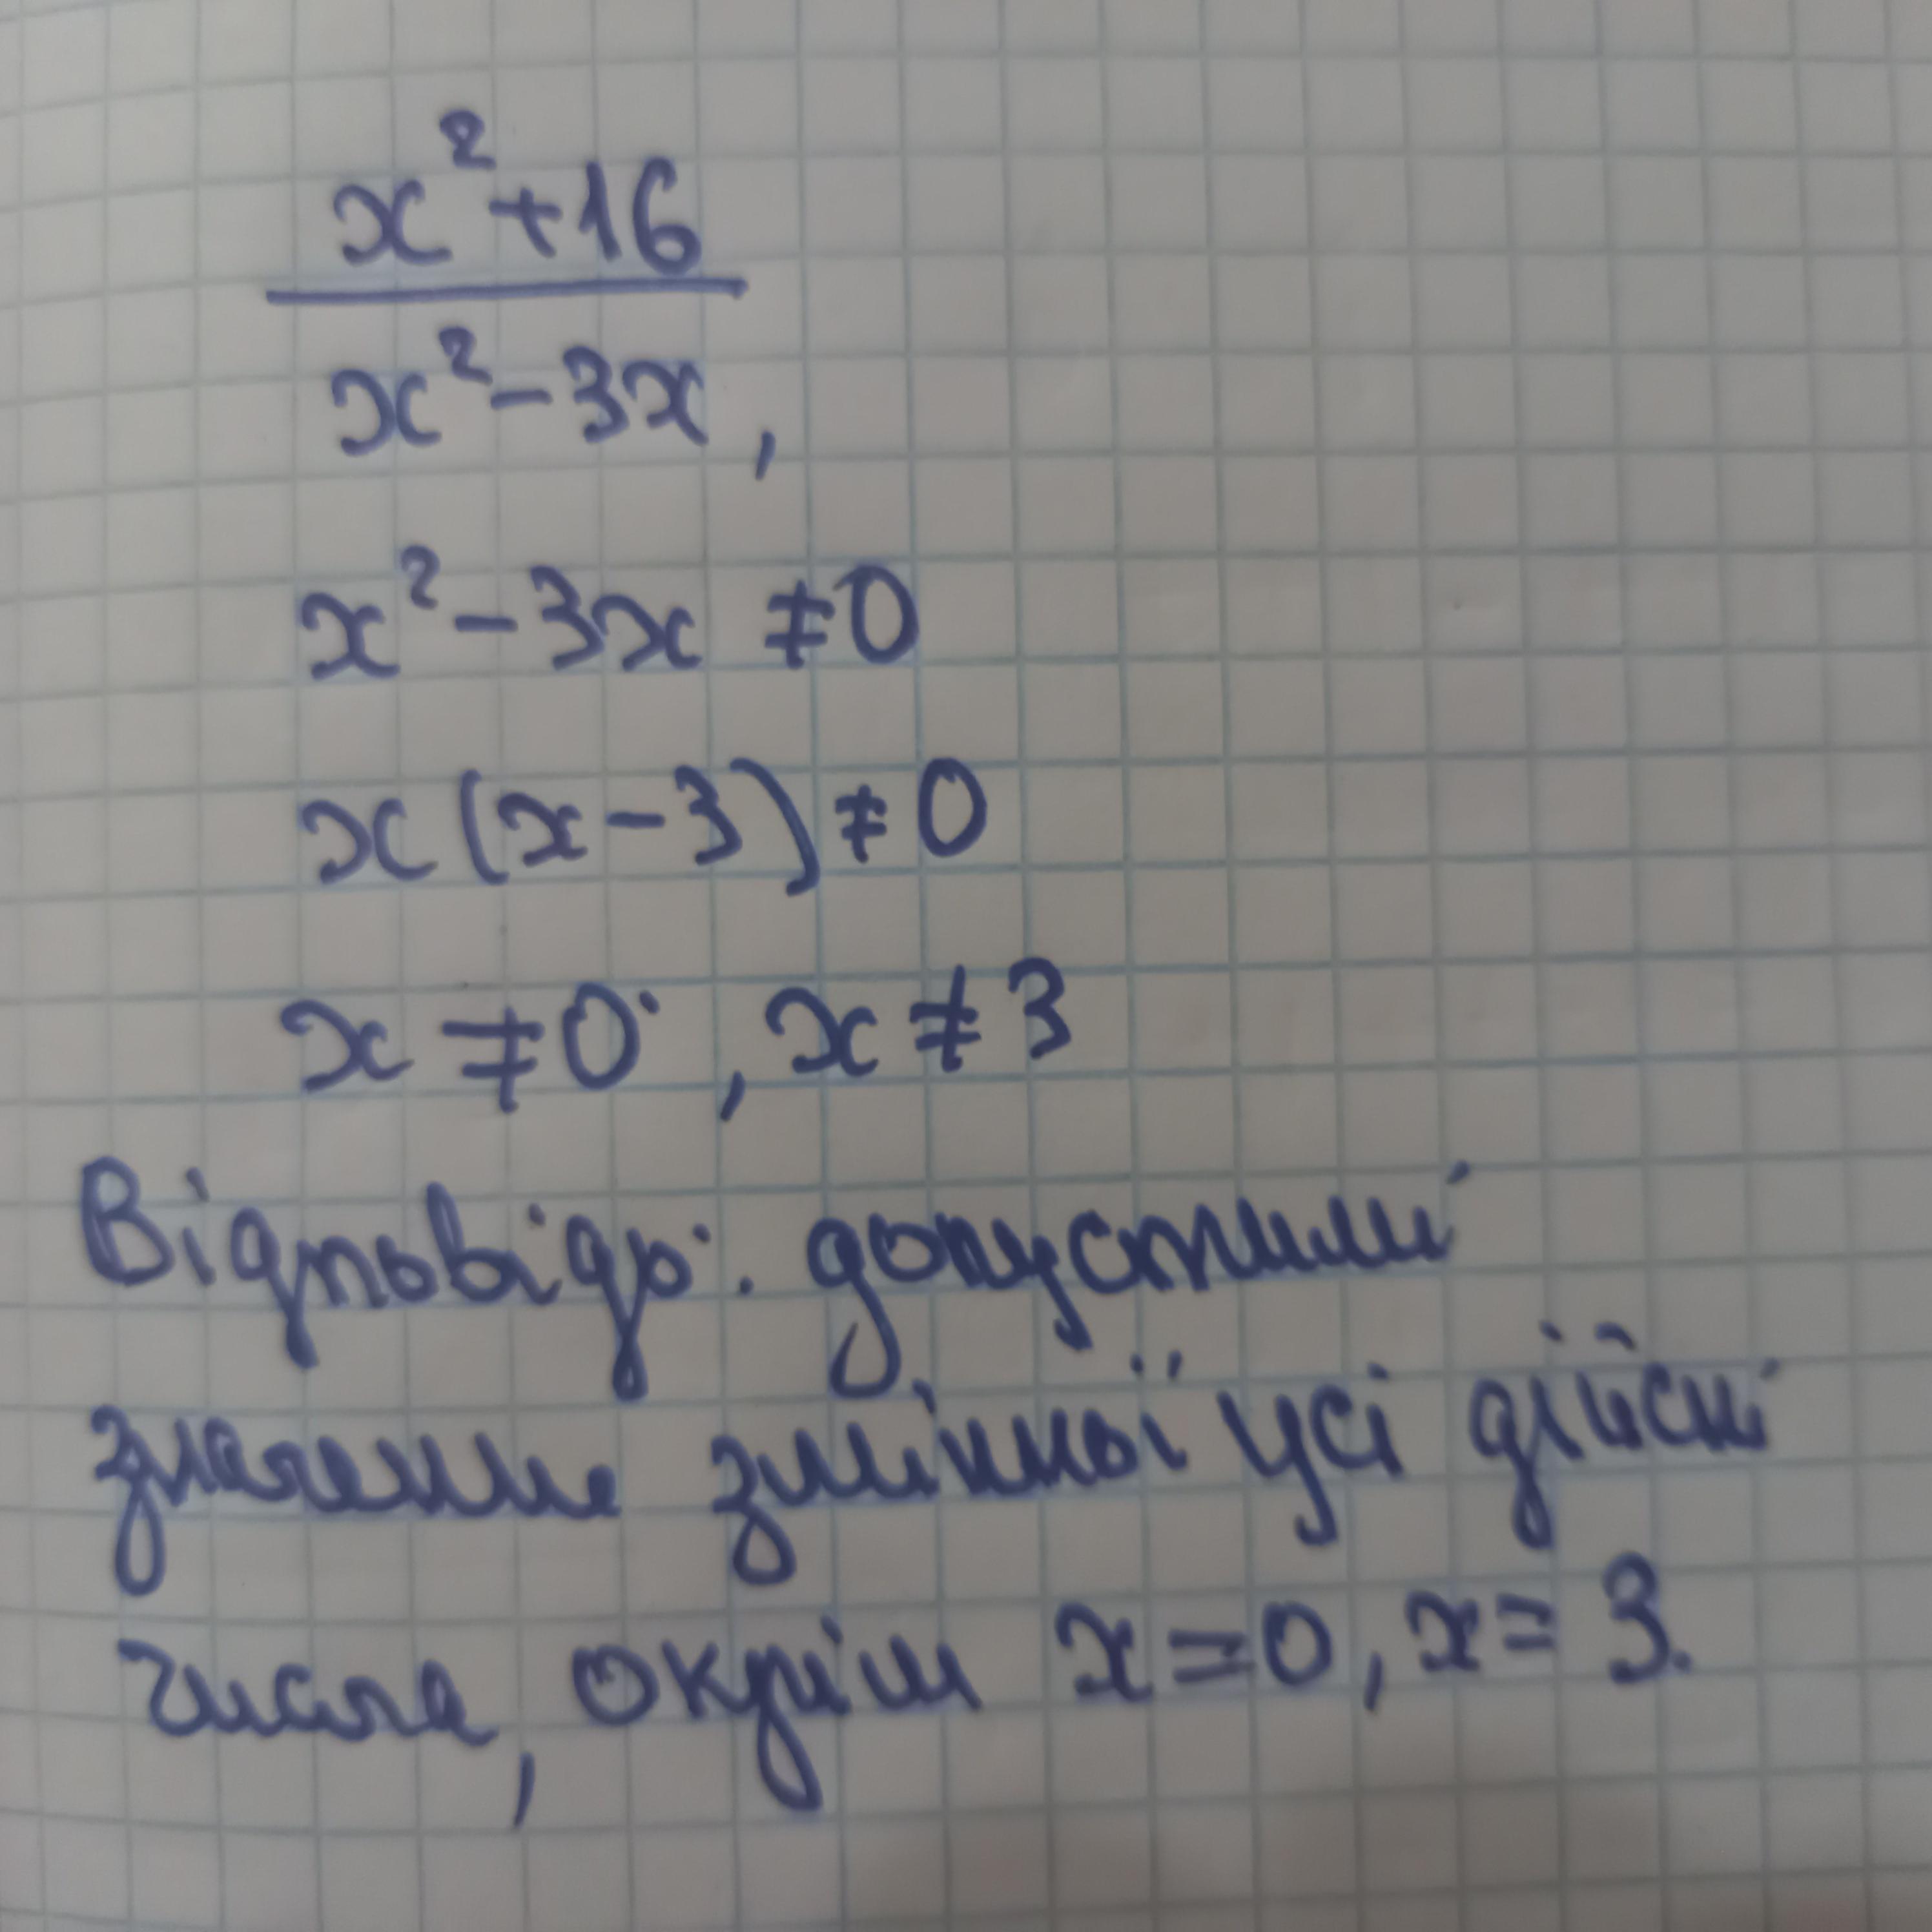 x²+16
x²-3x,
x²-3x ≠0
x(x-3)≠0
x≠0, x≠3
Відповідь: допустимі
значення змінної усі дійсні
числа, окрім x=0, x=3.